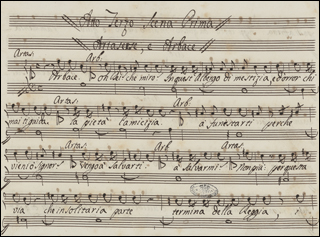 Atto Terzo Scena Prima
Artaserse, e Arbace
Artas. Arb.
Arbace oh Ciel! che miro! In quest' Albergo di mestizia, e d'orror chi
Artas. Arb.
mai ti guida la pietà l'amicizia. a funestarti perchè
Artas. Arb. Artas.
vieni ò Signor? Vengo a Salvarti. a Salvarmi? Non più per questa
via che in solitaria parte termina della Reggia,